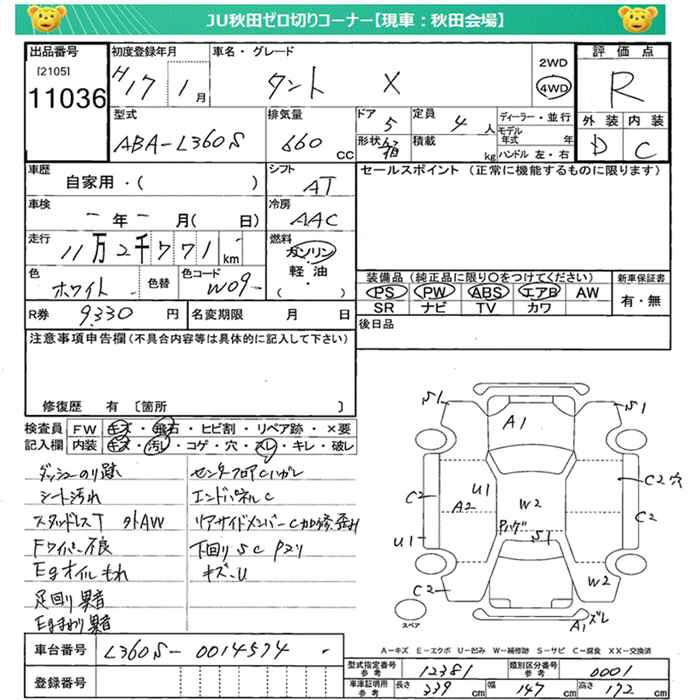 JU秋田ゼロ切りコーナー【現車：秋田会場】
出品番号
[2105]
11036
初度登録年月
H17 1月
車名・グレード
タント X
2WD
4WD
評価点
R
型式
ABA-L360S
排気量
660 CC
ドア
5
定員
4人
形状
箱
積載
kg
ディーラー・並行
モデル年式 年
ハンドル 左・右
外装 内装
D C
車歴
自家用・( )
シフト
AT
セールスポイント（正常に機能するものに限ります）
車検
－年－月( 日)
冷房
AAC
走行
11万2千771km
燃料
ガソリン・軽油・( )
色
ホワイト
色替
色コード
W09
装備品（純正品に限り○をつけてください）
PS PW ABS エアB AW
SR ナビ TV カワ
新車保証書
有・無
R券 9,330 円
名変期限 月 日
後日品
注意事項申告欄（不具合内容等は具体的に記入して下さい）
修復歴 有 〔箇所 〕
検査員記入欄
FW キズ・飛石・ヒビ割・リペア跡・×要
内装 キズ・汚レ・コゲ・穴・スレ・キレ・破レ
ダッシュのり跡
シート汚れ
スタッドレスT 外AW
Fワイパー不良
Egオイルもれ
足回り異音
Egまわり異音
センターフロアCハガレ
エンドパネルC
リアサイドメンバーC加修歪み
下回りSC Pスリ
キズ・U
S1 A1 S1
C2 U1 A2 W2 C2穴
C2
Pハゲ S1
U1
C2 W2
A1ズレ
スペア
A－キズ E－エクボ U－凹み W－補修跡 S－サビ C－腐食 XX－交換済
車台番号 L360S-0014574
登録番号
型式指定番号 参考 12381
類別区分番号 参考 0001
車庫証明用 参考 長さ 339cm 幅 147cm 高さ 172cm